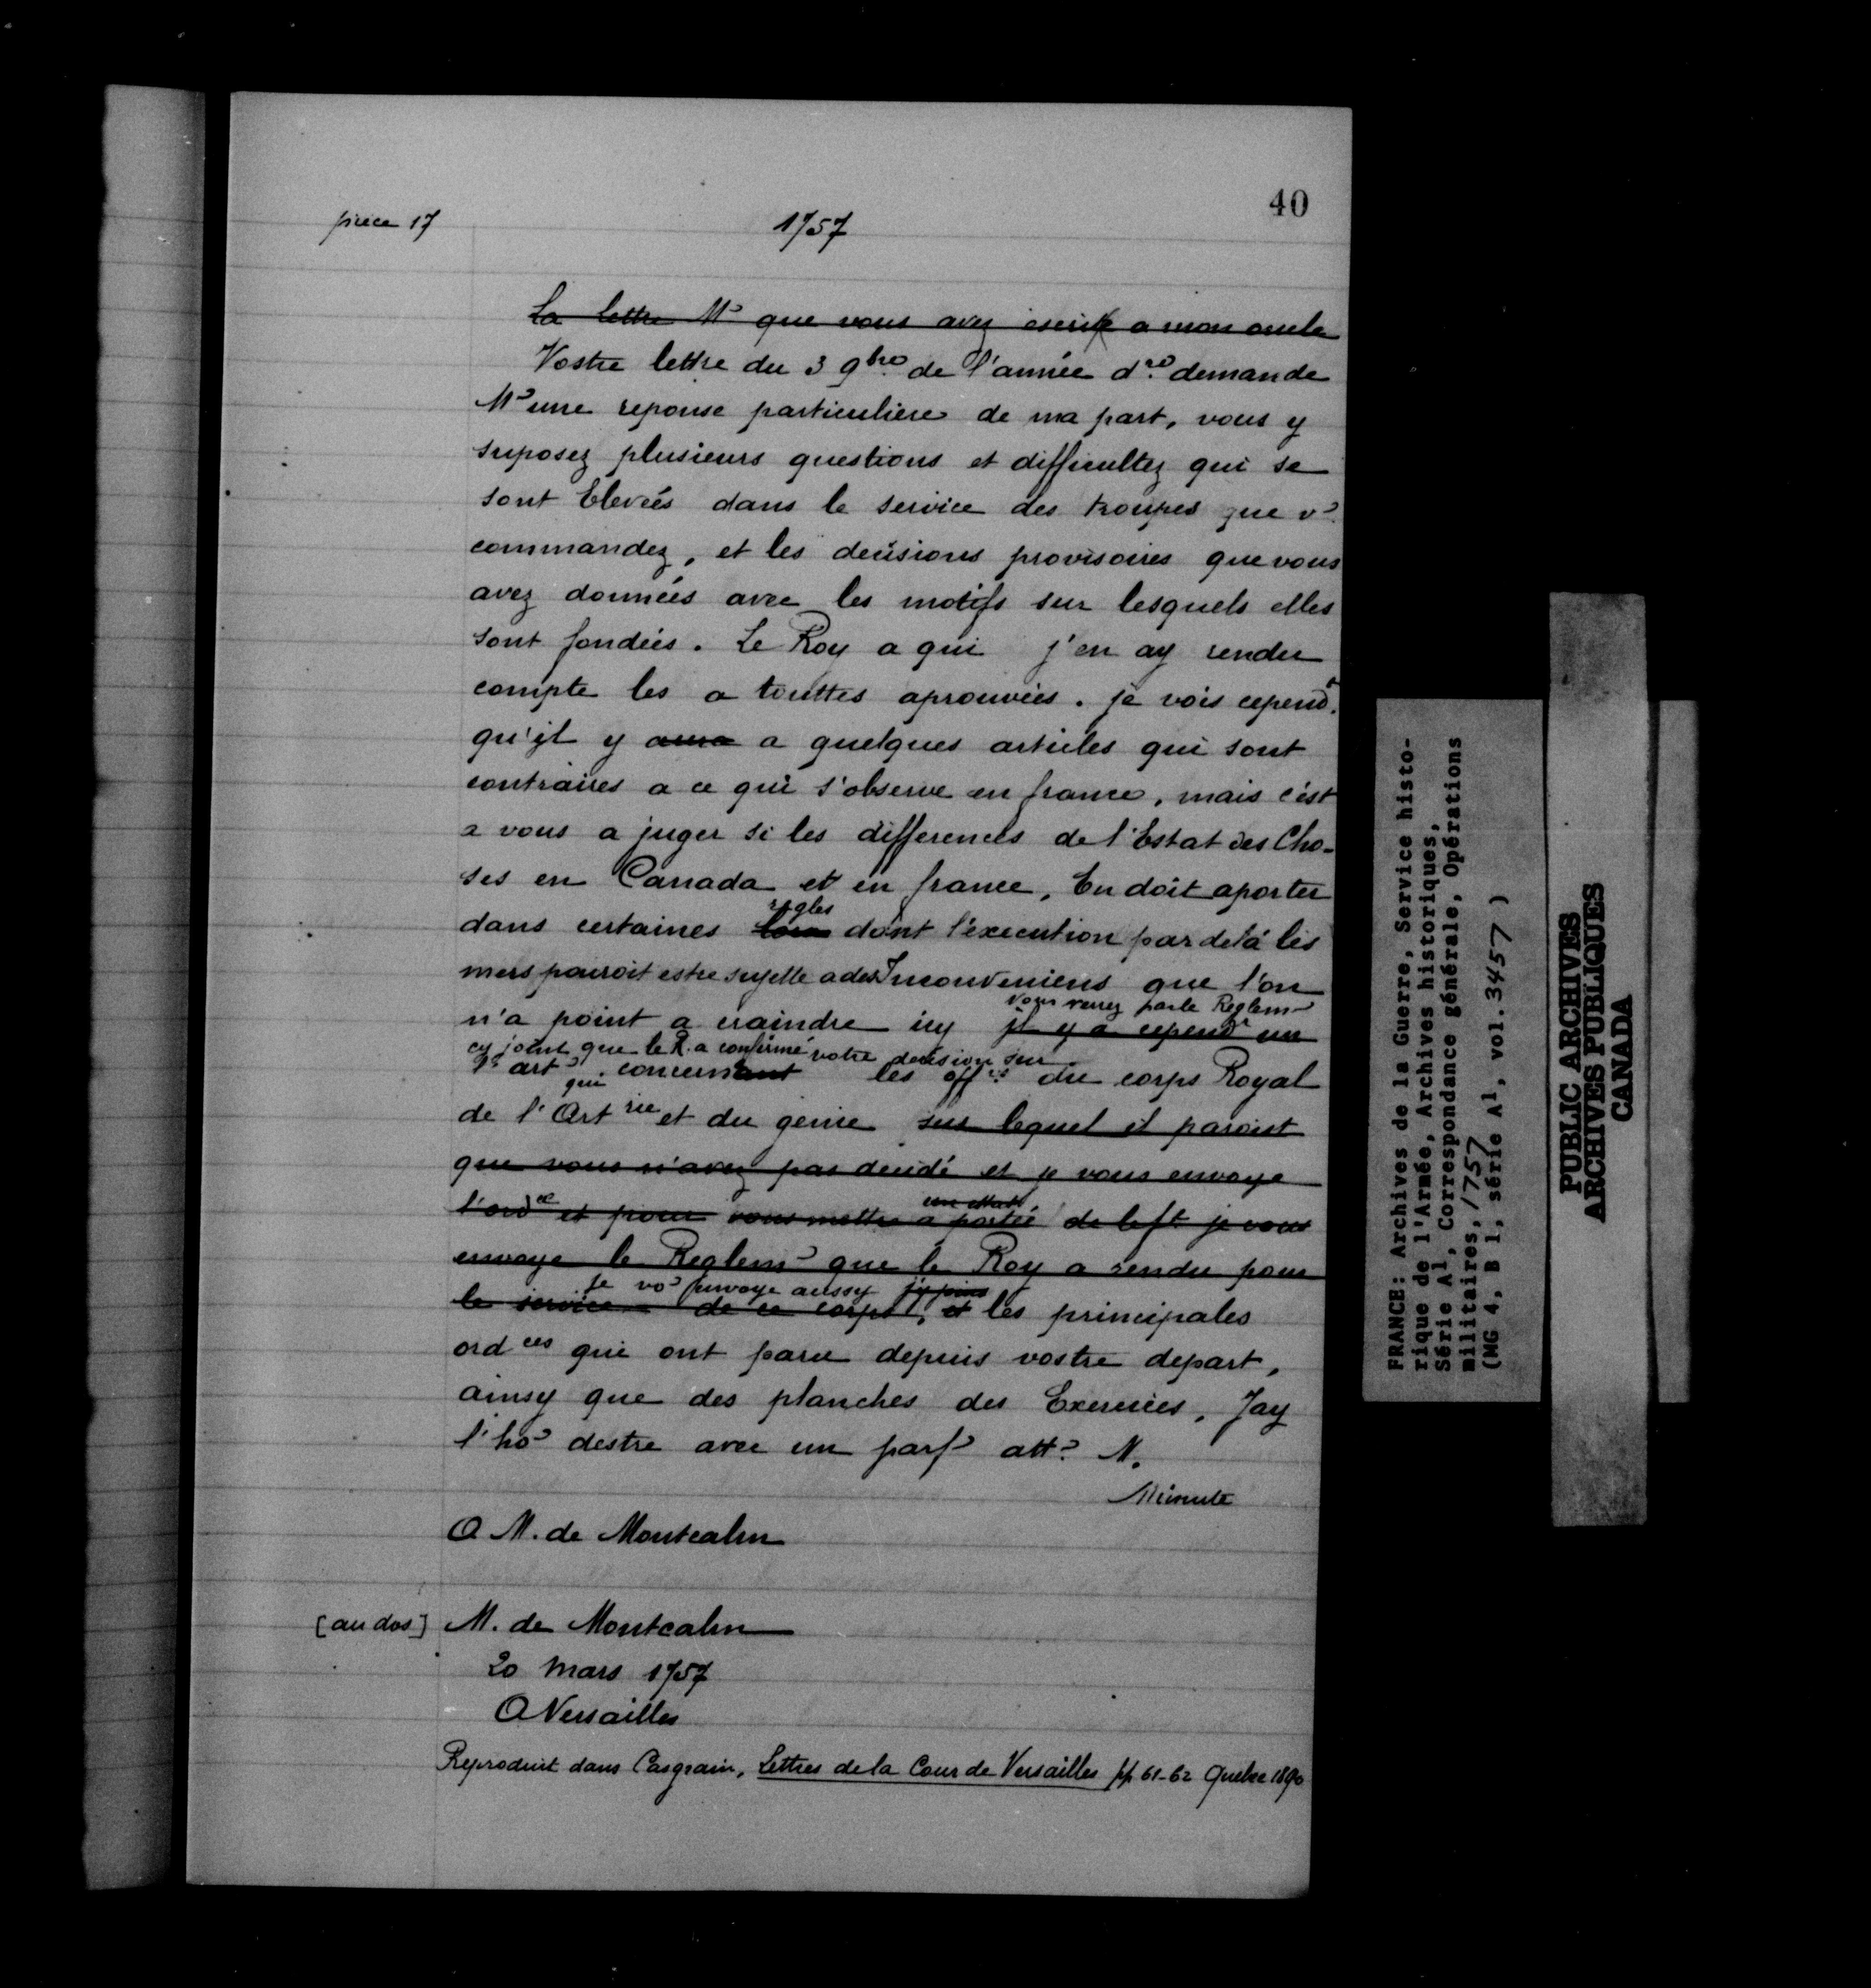 40
piece 17
1757
La lettre Mr que vous avez escrite a mon oncle
Vostre lettre du 3 9bre de l'année dre demande
Mr une reponse particuliere de ma part, vous y
suposez plusieurs questions et difficultez qui se
sont Elevées dans le service des troupes que vs
commandez, et les decisions provisoires que vous
avez données avec les motifs sur lesquels elles
sont fondées. Le Roy a qui j'en ay rendu
compte les a touttes aprouvées. je vois cependt
qu'jl y aura a quelques articles qui sont
contraires a ce qui s'observe en france, mais c'est
a vous a juger si les differences de l'Estat des Cho-
ses en Canada et en france, En doit aporter
regles
dans certaines dont l'execution par delà les
mers pouroit estre sujette a des Inconveniens que l'on
vous verrez par le Reglemt
n'a point a craindre icy jl y a cependt un
cy joint que le R. a confirmé votre decision sur
art qui concernant les offrs du corps Royal
de l'Artrie et du genie sur lequel il paroist
que vous n'avez pas decidé et je vous envoye
en estat
l'ordce et pour vous mettre a portée de je vous
envoye le Reglemt que le Roy a rendu pour
je vos envoye aussy j'y joins
le service de ce corps, et les principales
ordces qui ont paru depuis vostre depart,
ainsy que des planches des Exercices, Jay
l'ho destre avec un parft att? M.
Minute
A M. de Montcalm
[au dos] M. de Montcalm
20 mars 1757
A Versailles
Reproduit dans Casgrain, Lettres de la Cour de Versailles pp 61-62 Quebec 1890
FRANCE: Archives de la Guerre, Service histo-
rique de l'Armée, Archives historiques,
Série A1, Correspondance générale, Opérations
militaires, 1757
(MG 4, B 1, série A1, vol. 3457 )
PUBLIC ARCHIVES
ARCHIVES PUBLIQUES
CANADA